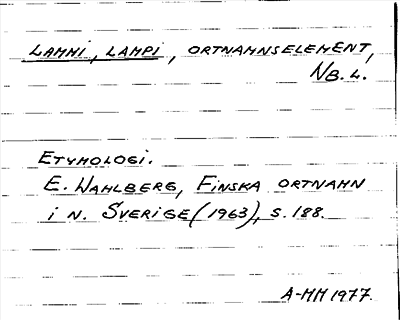 LAMMI, LAMPI, ORTNAMNSELEMENT,
NB. L.
ETYMOLOGI.
E. WAHLBERG, FINSKA ORTNAMN
i N. SVERIGE (1963), S. 188.
A-MM 1977.